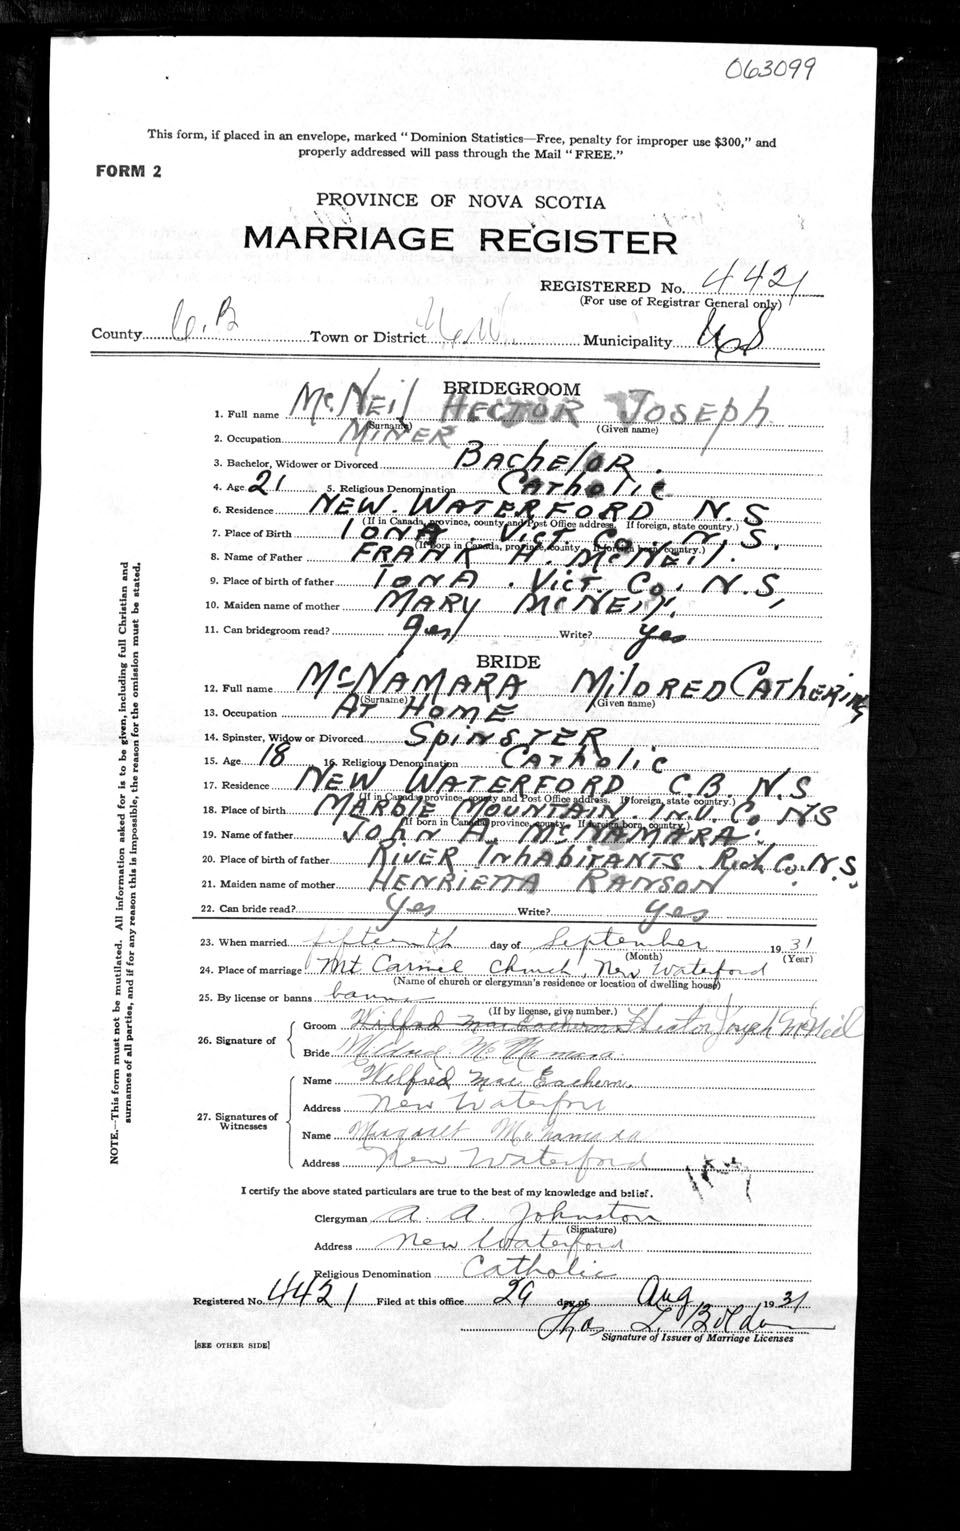 063099
This form, if placed in an envelope, marked "Dominion Statistics—Free, penalty for improper use $300," and
properly addressed will pass through the Mail "FREE."
FORM 2
PROVINCE OF NOVA SCOTIA
MARRIAGE REGISTER
REGISTERED No. 4421
(For use of Registrar General only)
County C.B Town or District N.W. Municipality
BRIDEGROOM
1. Full name McNeil Hector Joseph
(Surname) (Given name)
2. Occupation MINER
3. Bachelor, Widower or Divorced Bachelor.
4. Age 21 5. Religious Denomination Catholic
6. Residence NEW. WATERFORD N.S
(If in Canada, province, county and Post Office address. If foreign, state country.)
7. Place of Birth IONA. Vict. Co. N.S.
(If Born in Canada, province, county. If foreign born, country.)
8. Name of Father FRANK H. McNeil.
9. Place of birth of father IONA. Vict. Co. N.S,
10. Maiden name of mother MARY McNEIL,
11. Can bridegroom read? yes Write? yes
BRIDE
12. Full name McNAMARA MilDRED CATHERINE
(Surname) (Given name)
13. Occupation AT HOME
14. Spinster, Widow or Divorced SpiNSTER
15. Age 18 16. Religious Denomination CATholic
17. Residence NEW WATERFORD C.B. N.S
(If in Canada, province, county and Post Office address. If foreign, state country.)
18. Place of birth MARBLE MOUNTAIN. IN.V. Co NS
(If born in Canada, province, county. If foreign born, country.)
19. Name of father JOHN A. McNAMARA.
20. Place of birth of father RIVER INHABITANTS. Rich Co. N.S.
21. Maiden name of mother HENRIETTA RANSON
22. Can bride read? yes Write? yes
23. When married fifteenth day of September 1931
(Month) (Year)
24. Place of marriage Mt Carmel Church, New Waterford
(Name of church or clergyman's residence or location of dwelling house)
25. By license or banns banns
(If by license, give number.)
26. Signature of
Groom Wilfred MacEachern Hector Joseph McNeil
Bride Mildred McNamara
27. Signatures of Witnesses
Name Wilfred MacEachern
Address New Waterford
Name Margaret McNamara
Address New Waterford
I certify the above stated particulars are true to the best of my knowledge and belief.
Clergyman A. A. Johnston
(Signature)
Address New Waterford
Religious Denomination Catholic
Registered No. 4421 Filed at this office 29 day of Aug 1931
Signature of Issuer of Marriage Licenses
[SEE OTHER SIDE]
NOTE.—This form must not be mutilated. All information asked for is to be given, including full Christian and
surnames of all parties, and if for any reason this is impossible, the reason for the omission must be stated.